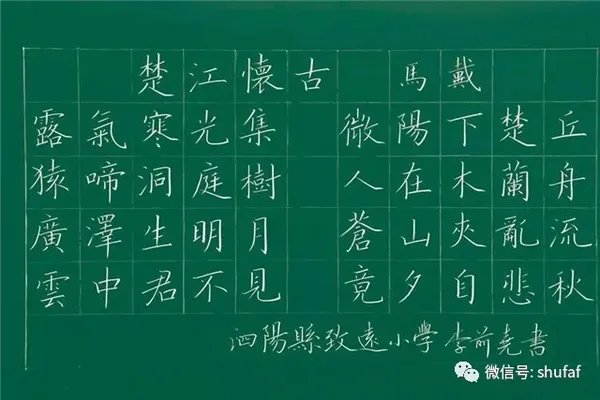 楚江懷古 馬戴
露氣寒光集 微陽下楚丘
猿啼洞庭樹 人在木蘭舟
廣澤生明月 蒼山夾亂流
雲中君不見 竟夕自悲秋
泗陽縣致遠小學 李前堯書
微信号: shufaf